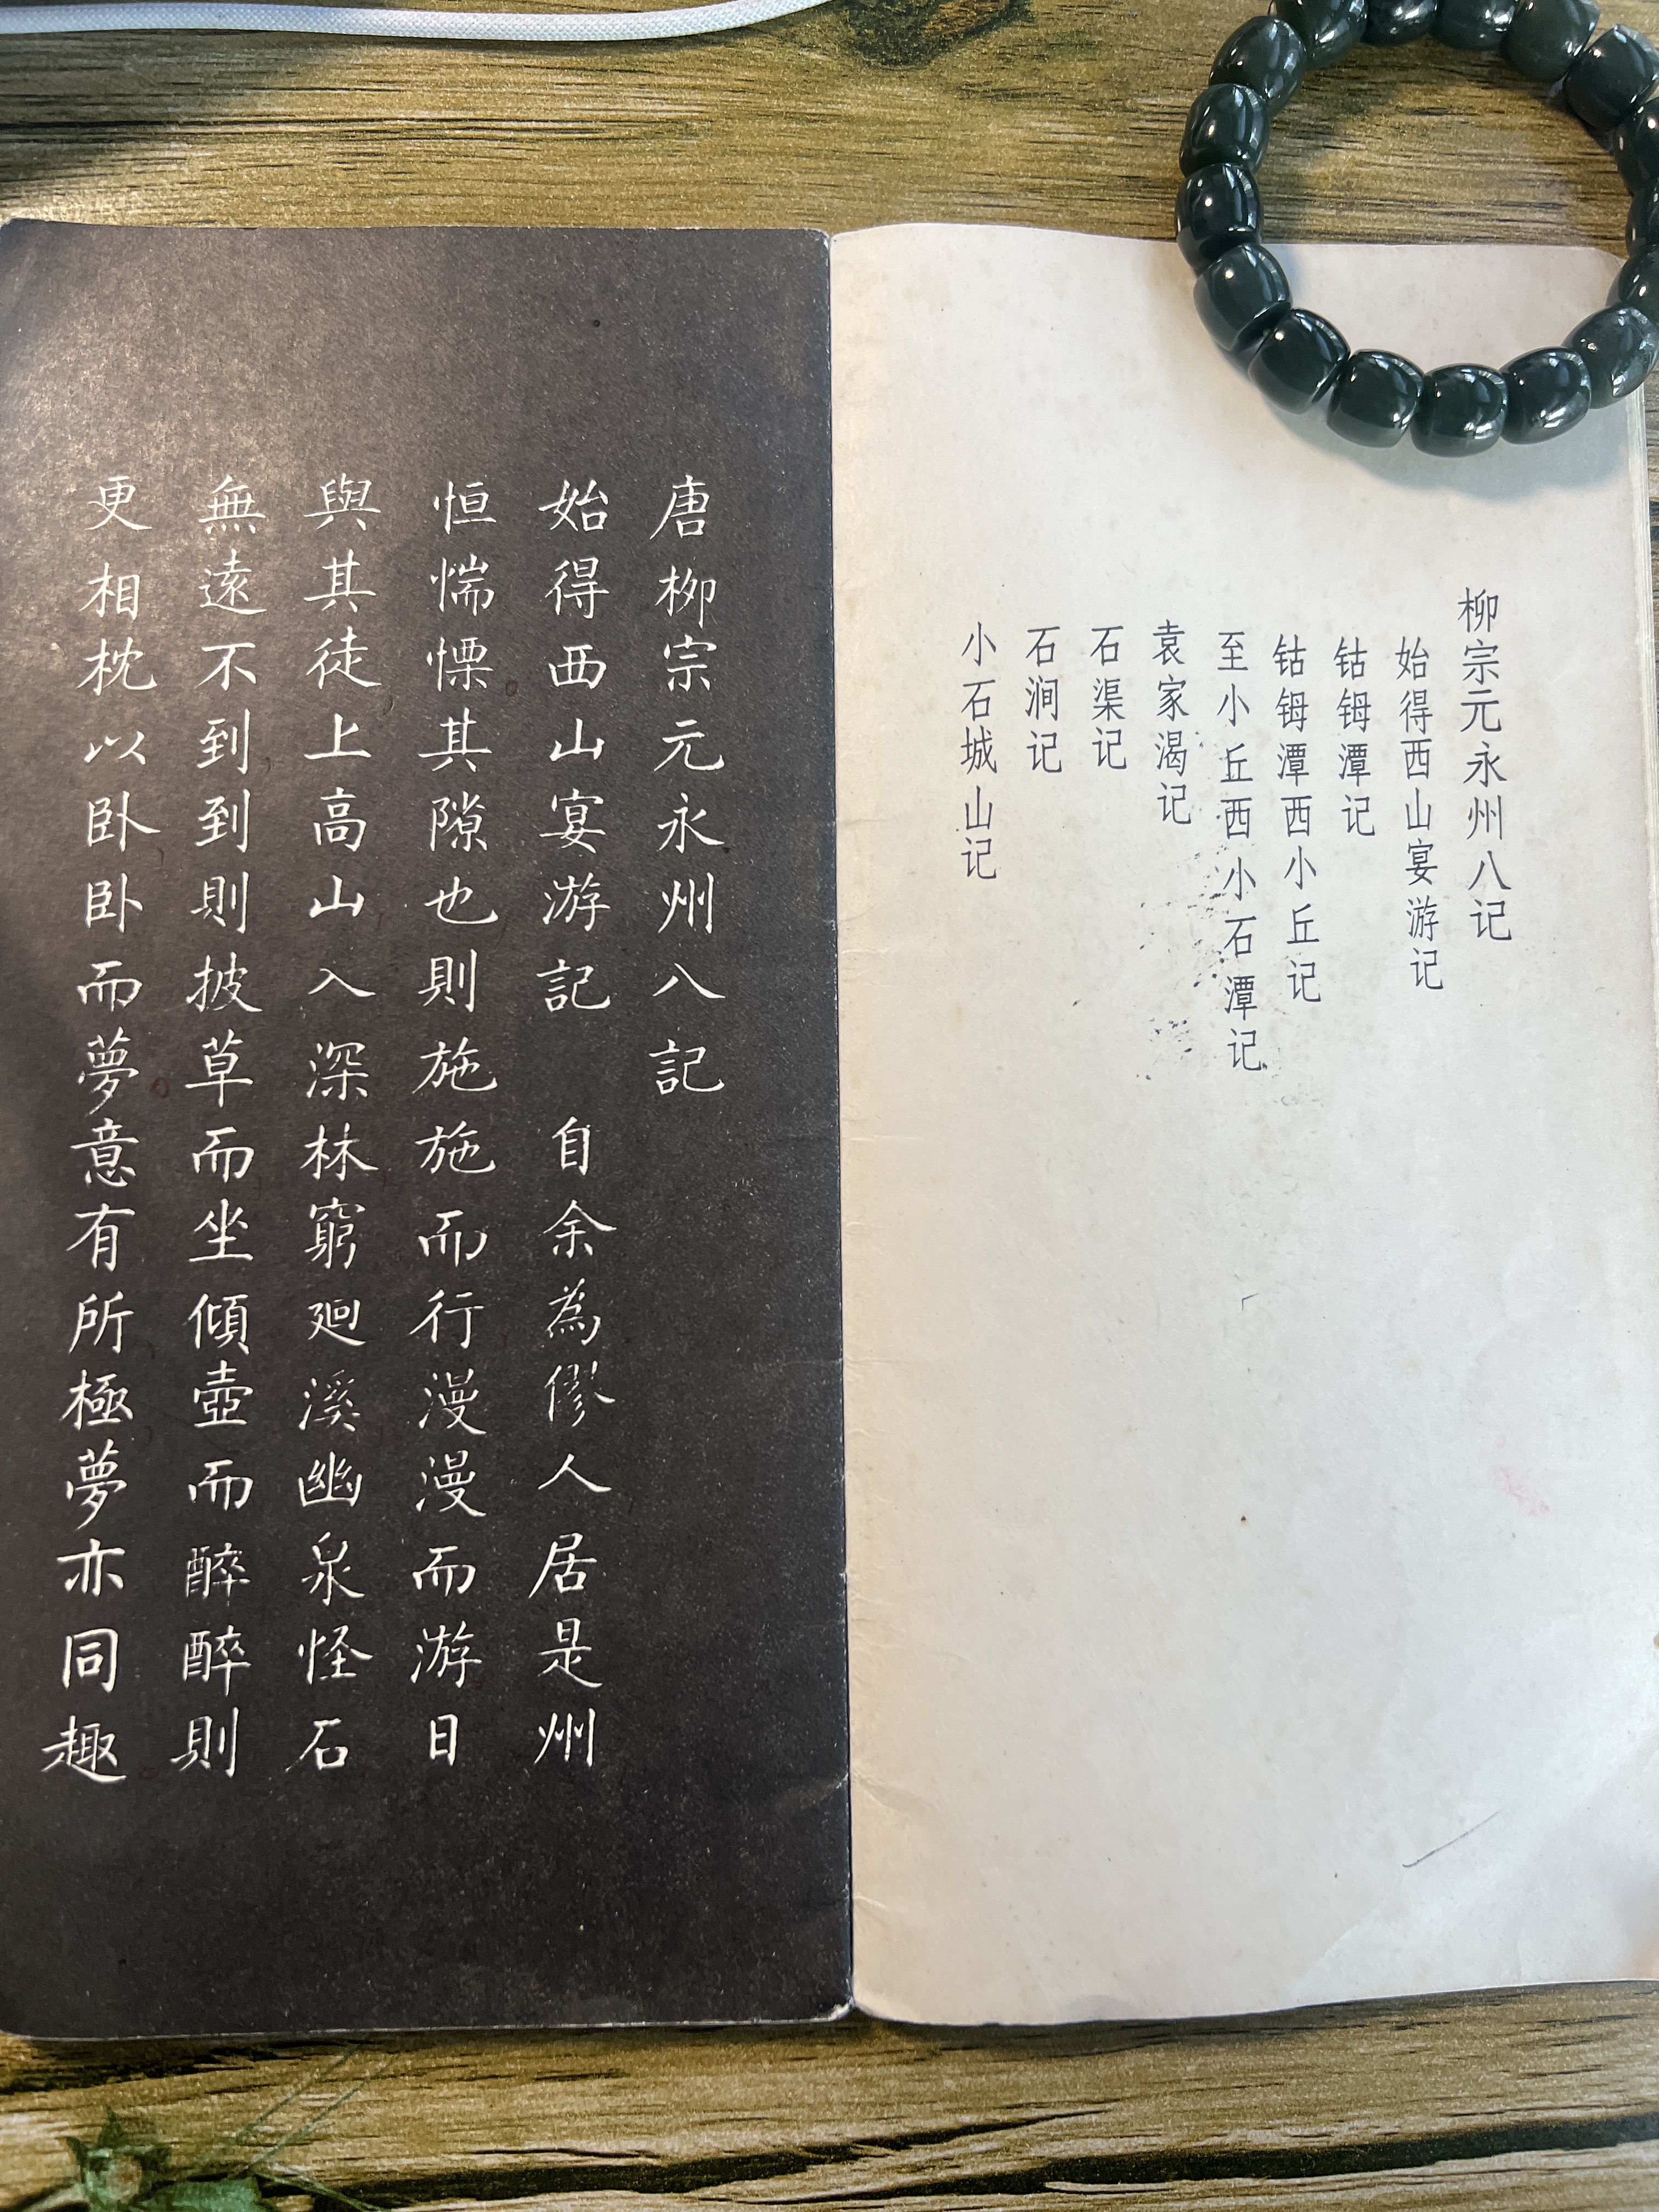 柳宗元永州八记
始得西山宴游记
钴鉧潭记
钴鉧潭西小丘记
至小丘西小石潭记
袁家渴记
石渠记
石涧记
小石城山记
唐柳宗元永州八記
始得西山宴游記　自余為僇人居是州
恒惴慄其隙也則施施而行漫漫而游日
與其徒上高山入深林窮廻溪幽泉怪石
無遠不到到則披草而坐傾壺而醉醉則
更相枕以卧卧而夢意有所極夢亦同趣